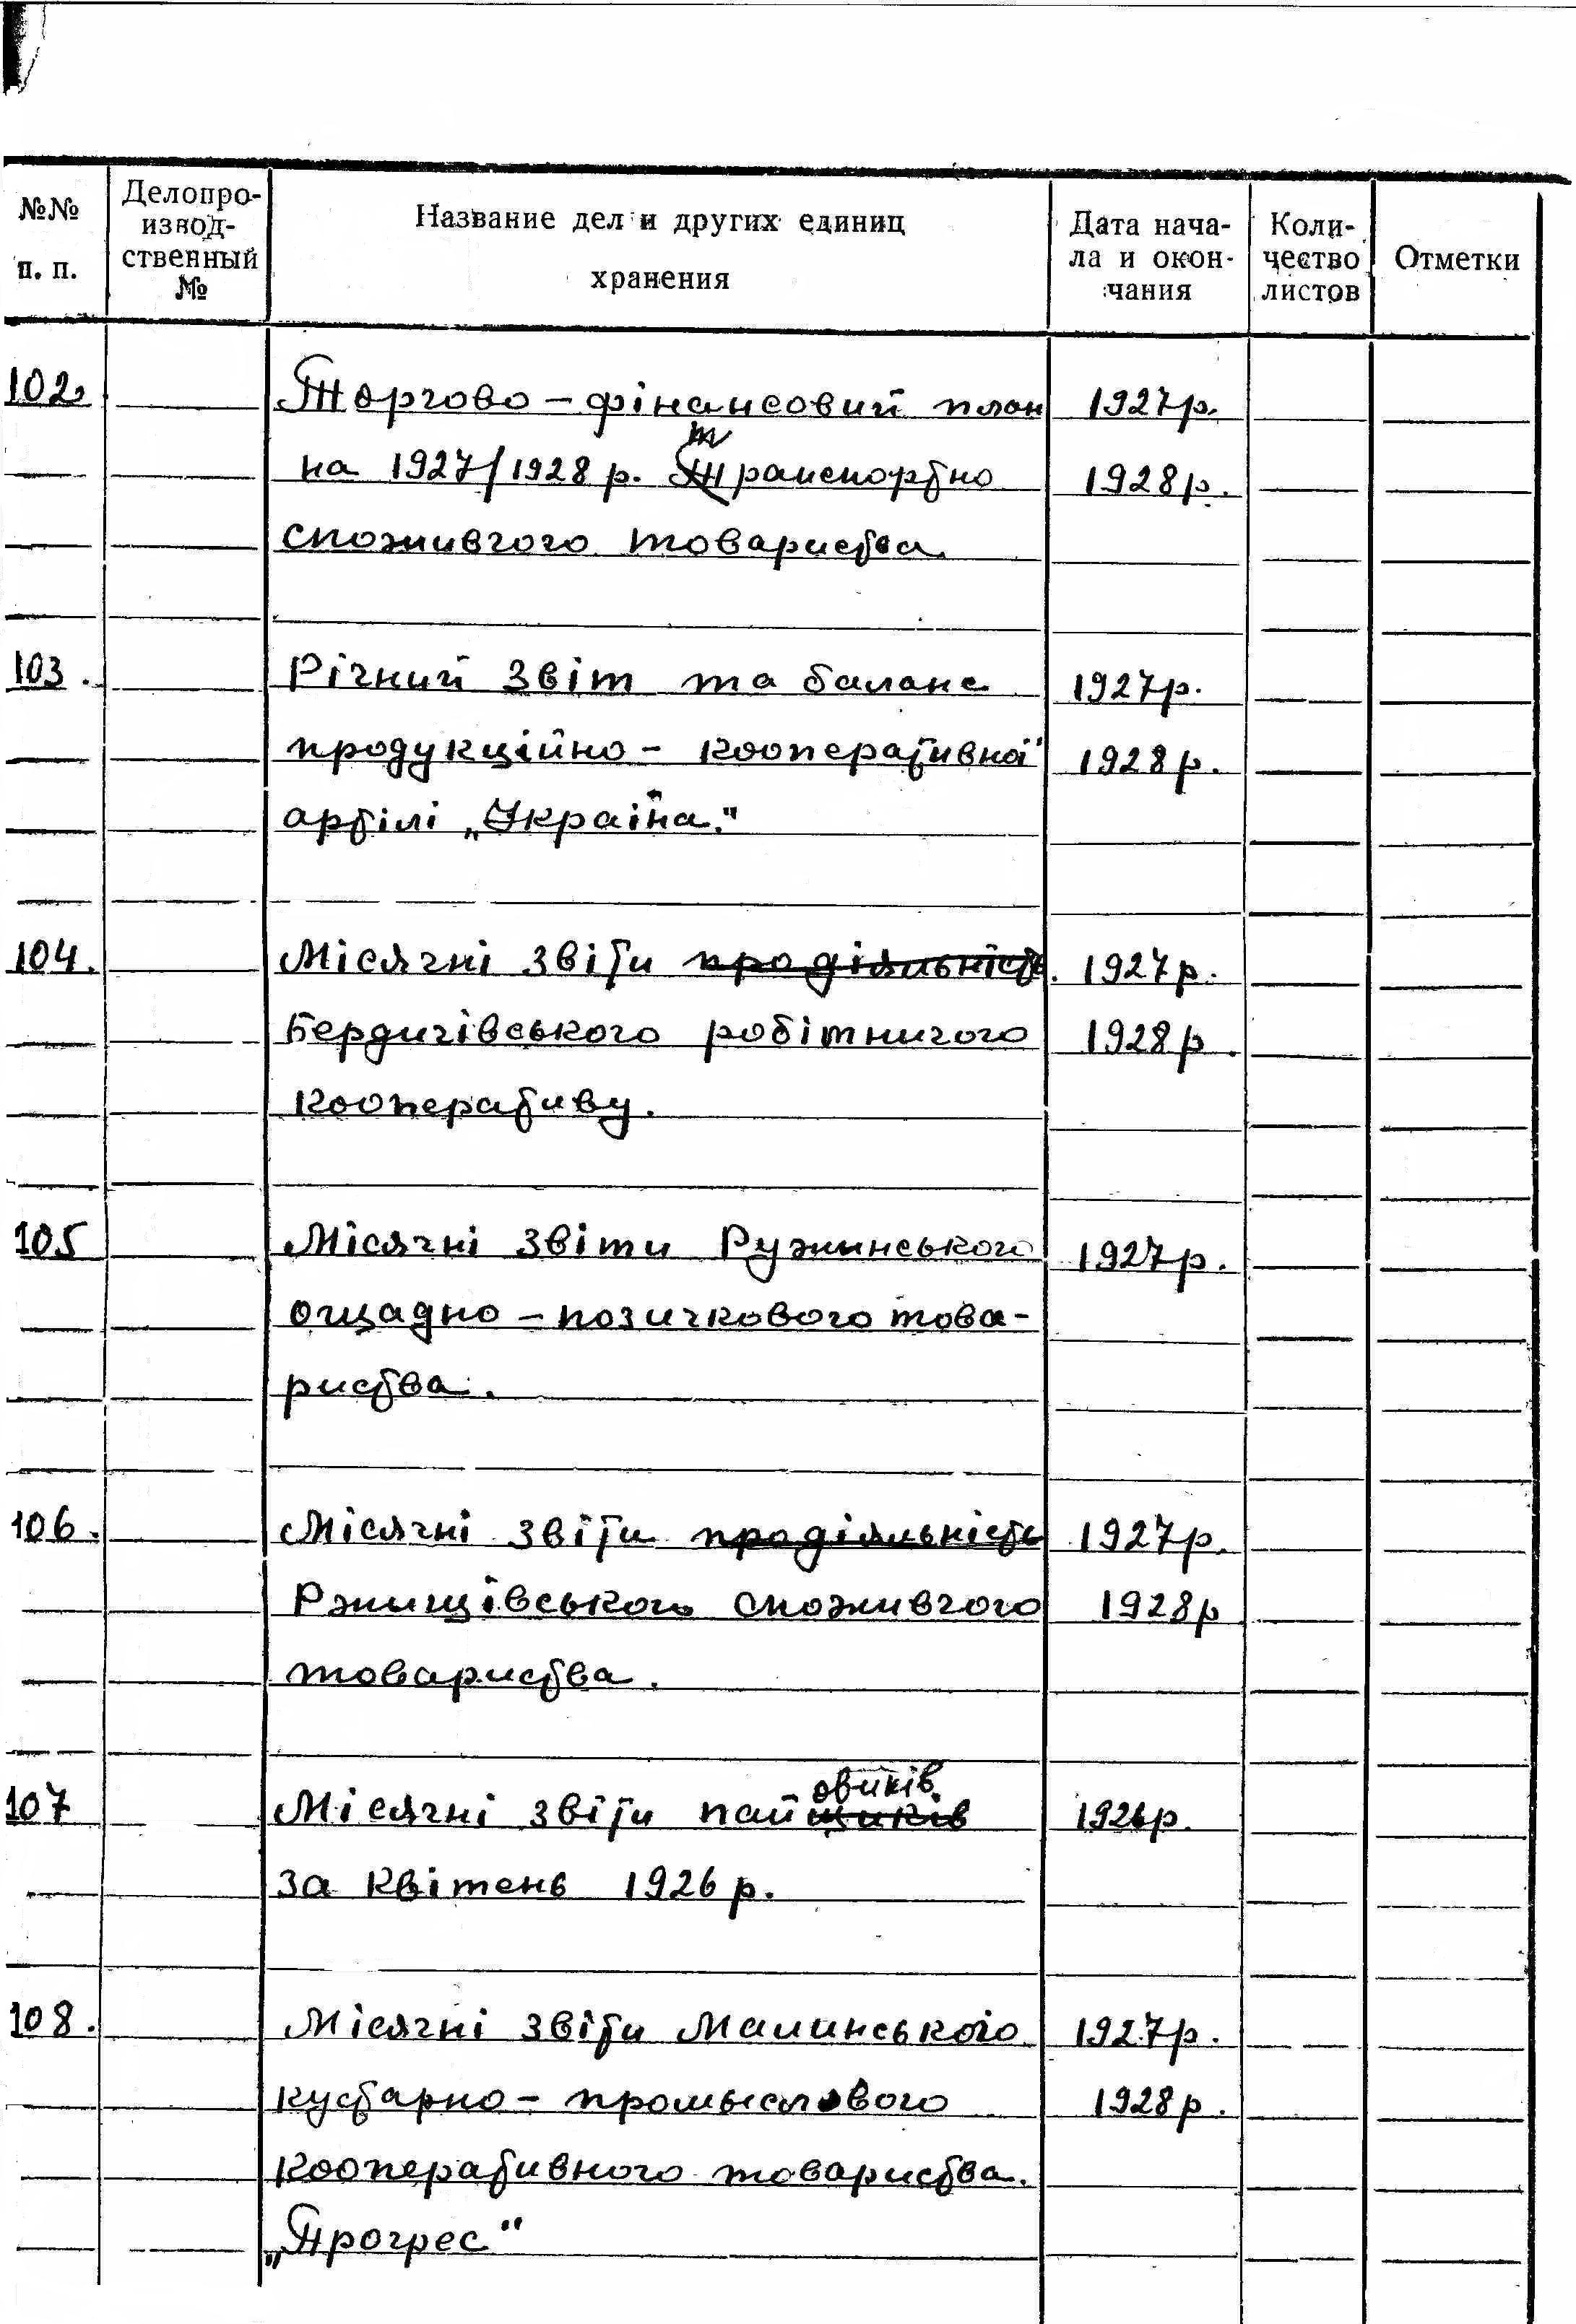 №№ п. п.
Делопро-
извод-
ственный
№
Название дел и других единиц
хранения
Дата нача-
ла и окон-
чания
Коли-
чество
листов
Отметки
102. Торгово - фінансовий план 1927р.
на 1927/1928 р. транспортно 1928р.
споживчого товариства
103. Річний звіт та баланс 1927р.
продукційно - кооперативної 1928р.
артілі „Україна."
104. Місячні звіти про діяльність. 1927р.
Бердичівського робітничого 1928р.
кооперативу.
105 Місячні звіти Ружинського 1927р.
ощадно - позичкового това-
риства.
106. Місячні звіти про діяльність 1927р.
Ржищівського споживчого 1928р
товариства.
овиків
107 Місячні звіти пайщиків 1926р.
за квітень 1926 р.
108. Місячні звіти Малинського 1927р.
кустарно - промыслового 1928р.
кооперативного товариства.
„Прогрес"